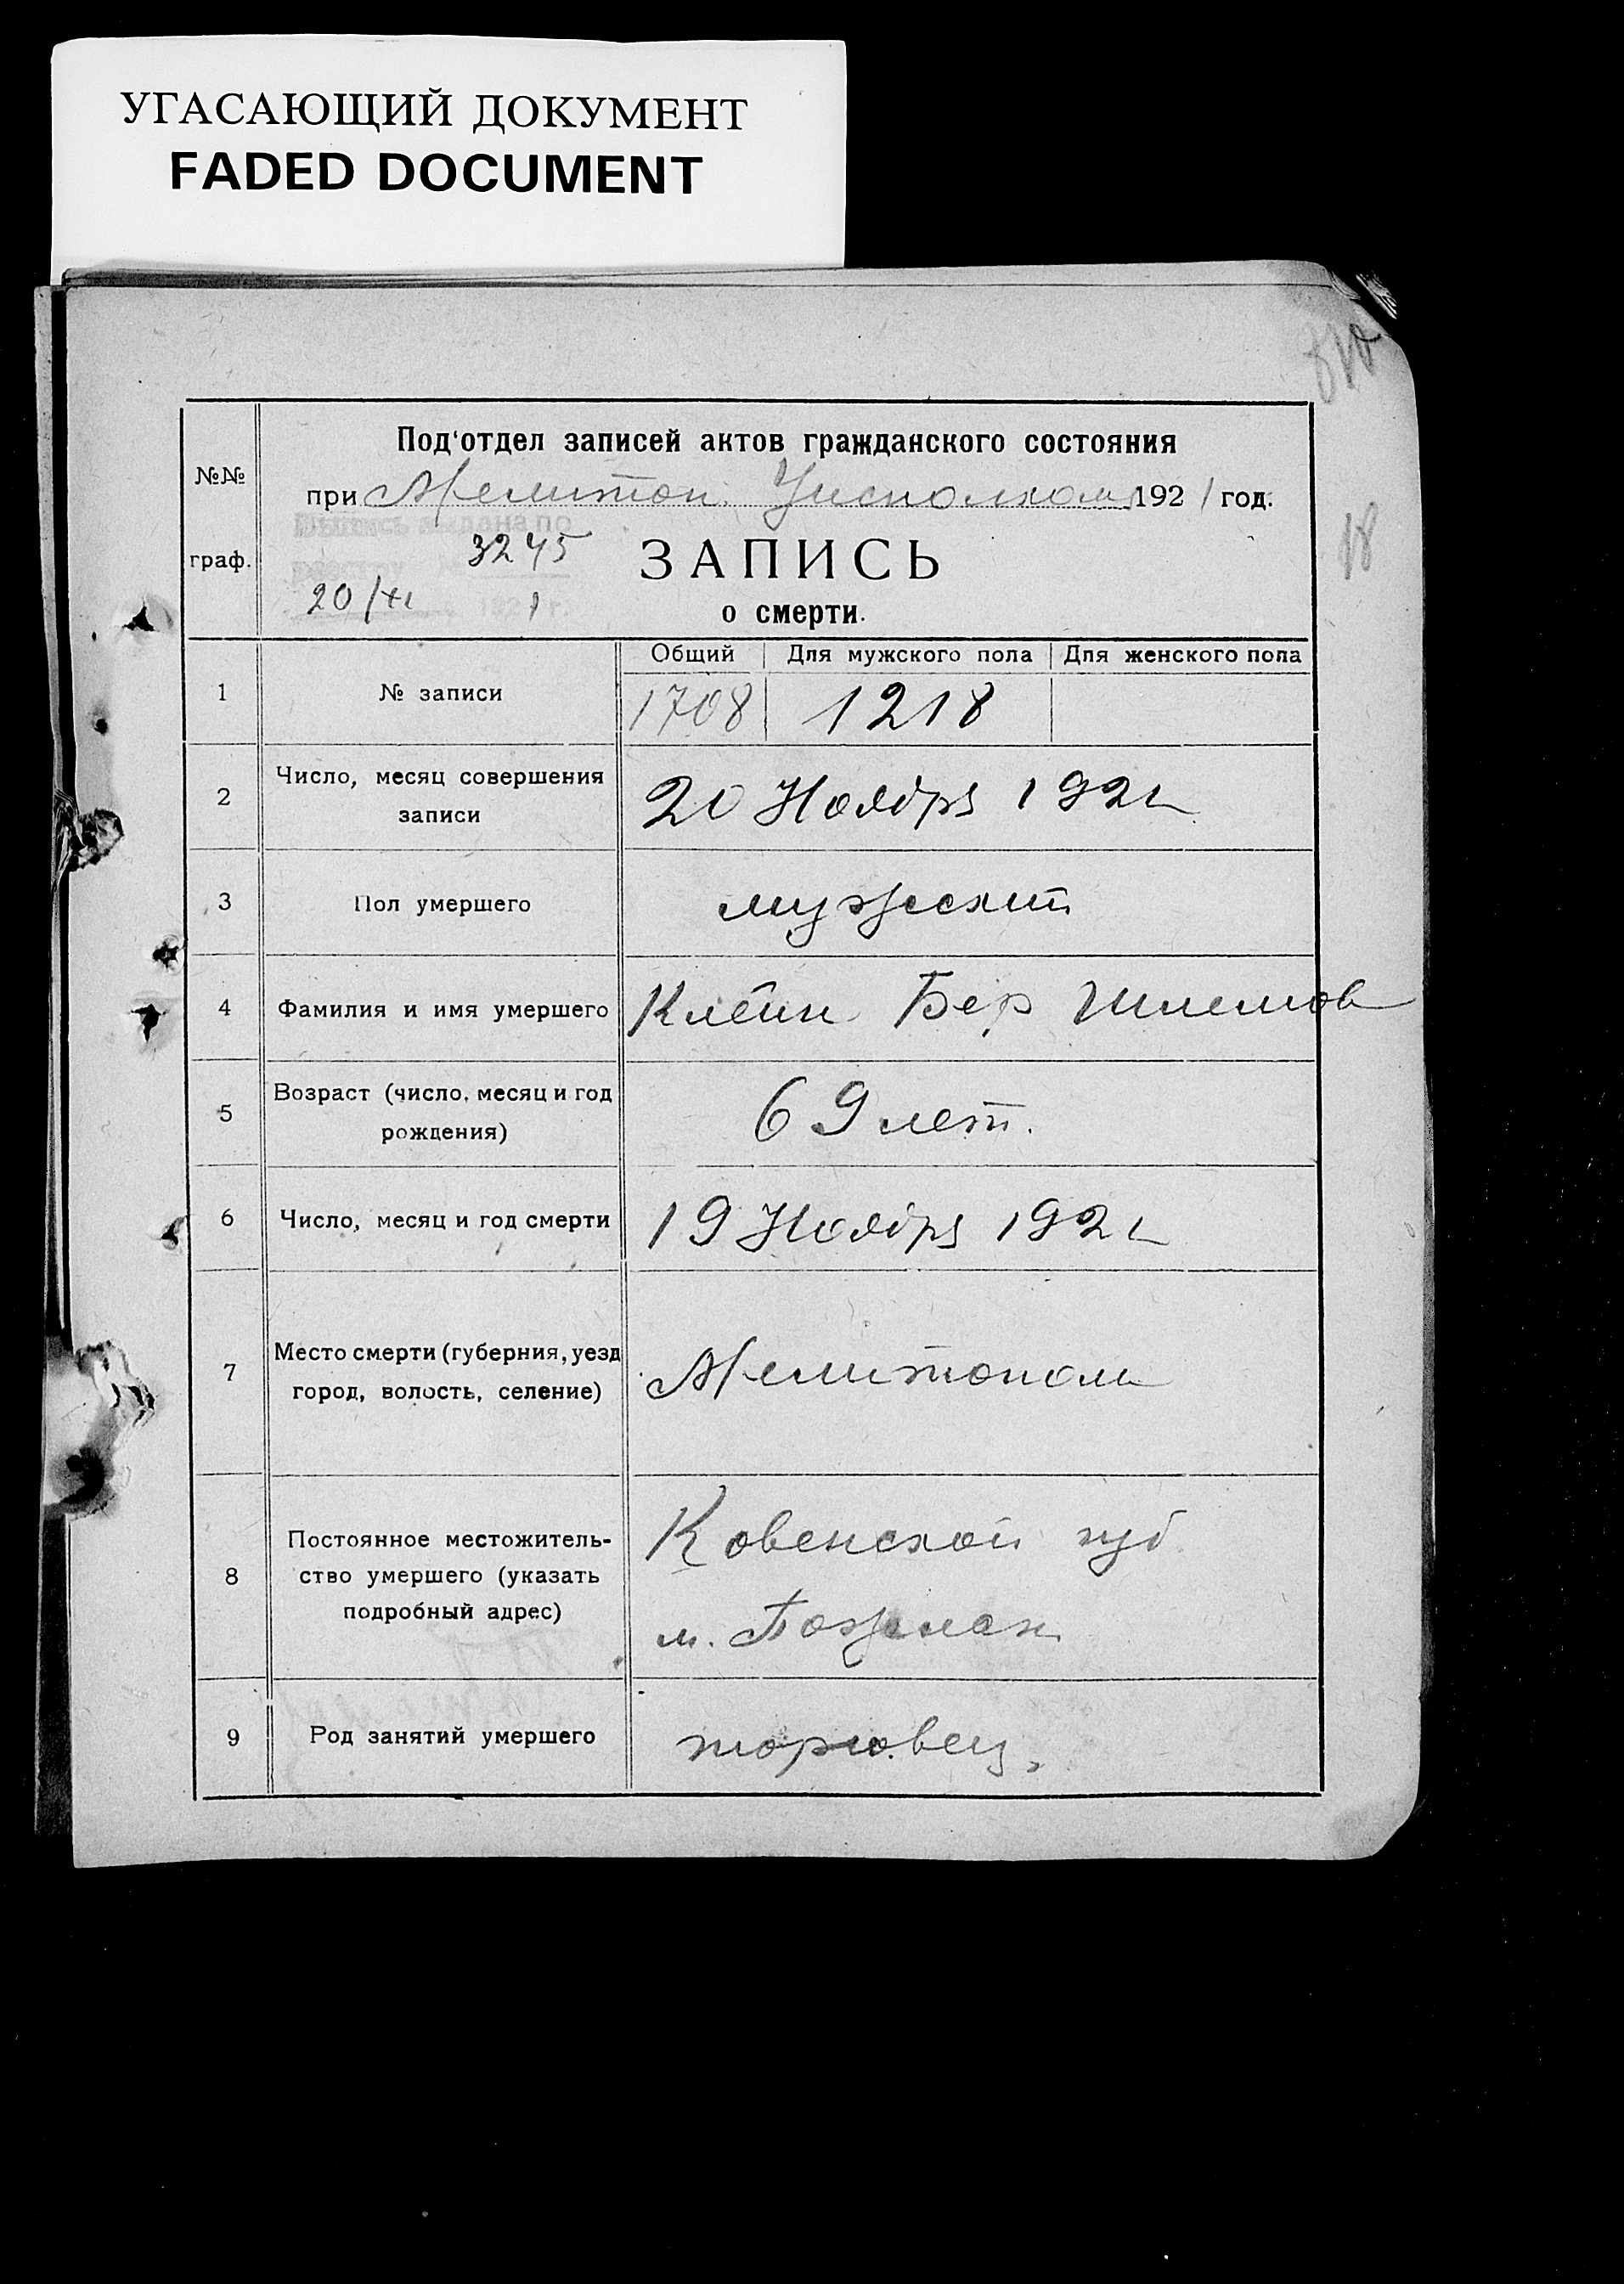 УГАСАЮЩИЙ ДОКУМЕНТ
FADED DOCUMENT
18
Под'отдел записей актов гражданского состояния
№№
граф.
при Мелитоп. Уисполкоме 1921 год.
выдана по
3245
20/XI 1921 г.
ЗАПИСЬ
о смерти.
Общий Для мужского пола Для женского пола
1 № записи 1708 1218
2 Число, месяц совершения
записи
20 Ноября 1921
3 Пол умершего мужеский
4 Фамилия и имя умершего Клейн Бер Шлемов
5 Возраст (число, месяц и год
рождения)
69 лет.
6 Число, месяц и год смерти 19 Ноября 1921
7 Место смерти (губерния, уезд
город, волость, селение)
Мелитополь
8 Постоянное местожитель-
ство умершего (указать
подробный адрес)
Ковенской губ
м.
9 Род занятий умершего торговец,